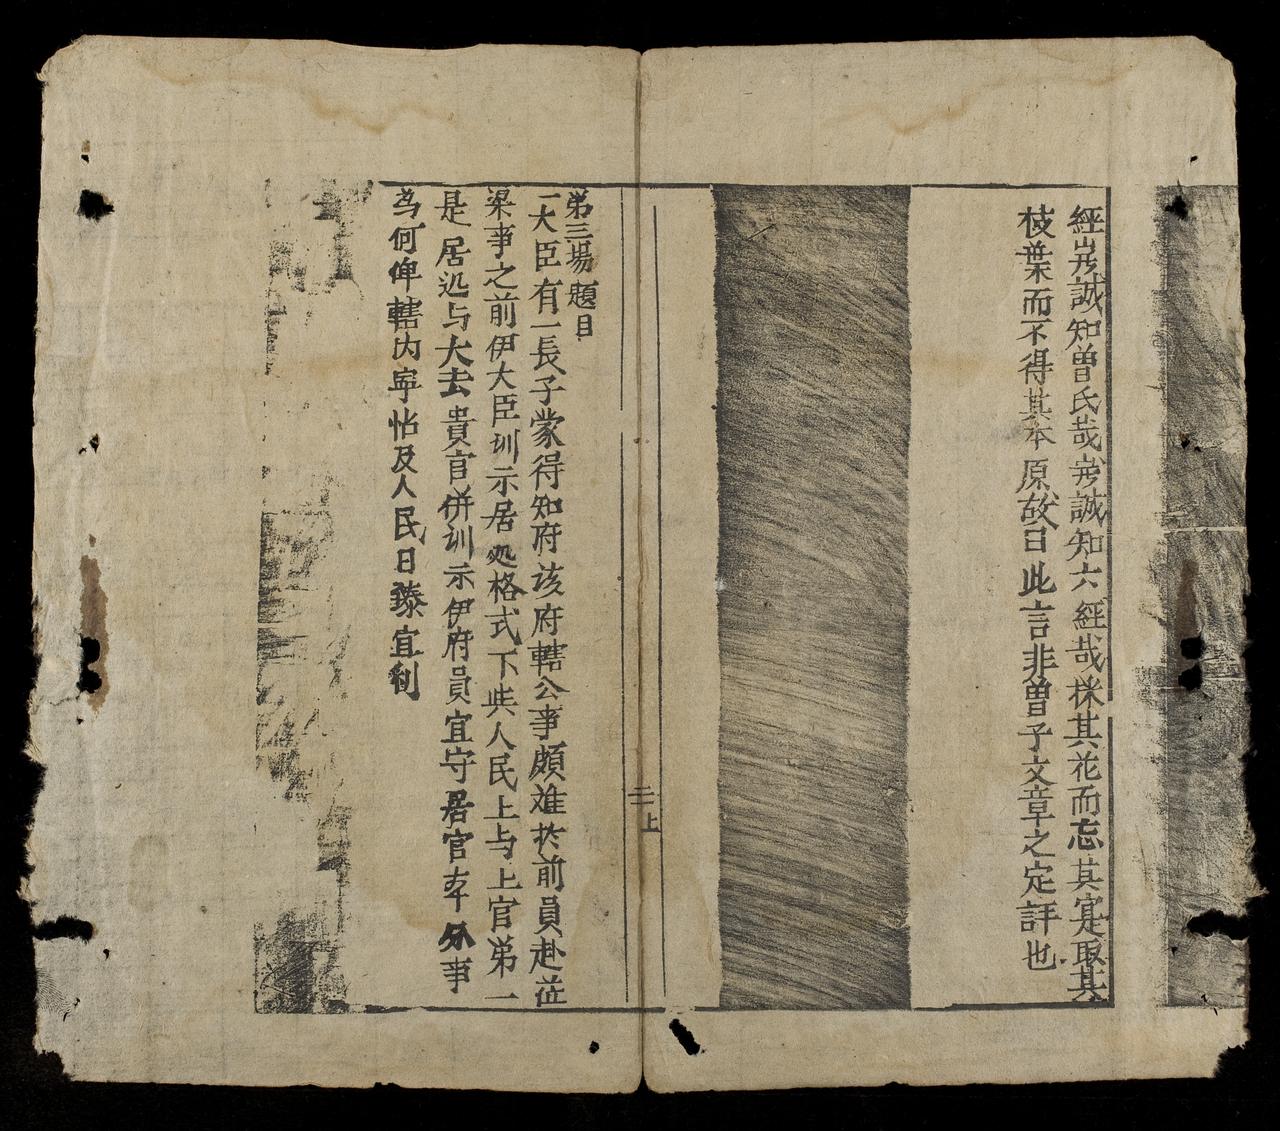 經岂誠知曾氏哉岂誠知六經哉採其花而忘其寔取其
枝葉而不得其本原故曰此言非曾子文章之定評也
二上
第三場題目
一大臣有一長子蒙得知府该府轄公事頗難於前員赴莅
梁事之前伊大臣训示居处格式下些人民上与上官第一
是居处与大去貴官併训示伊府員宜守居官本分事
為何俾轄内寜帖及人民日臻宜利